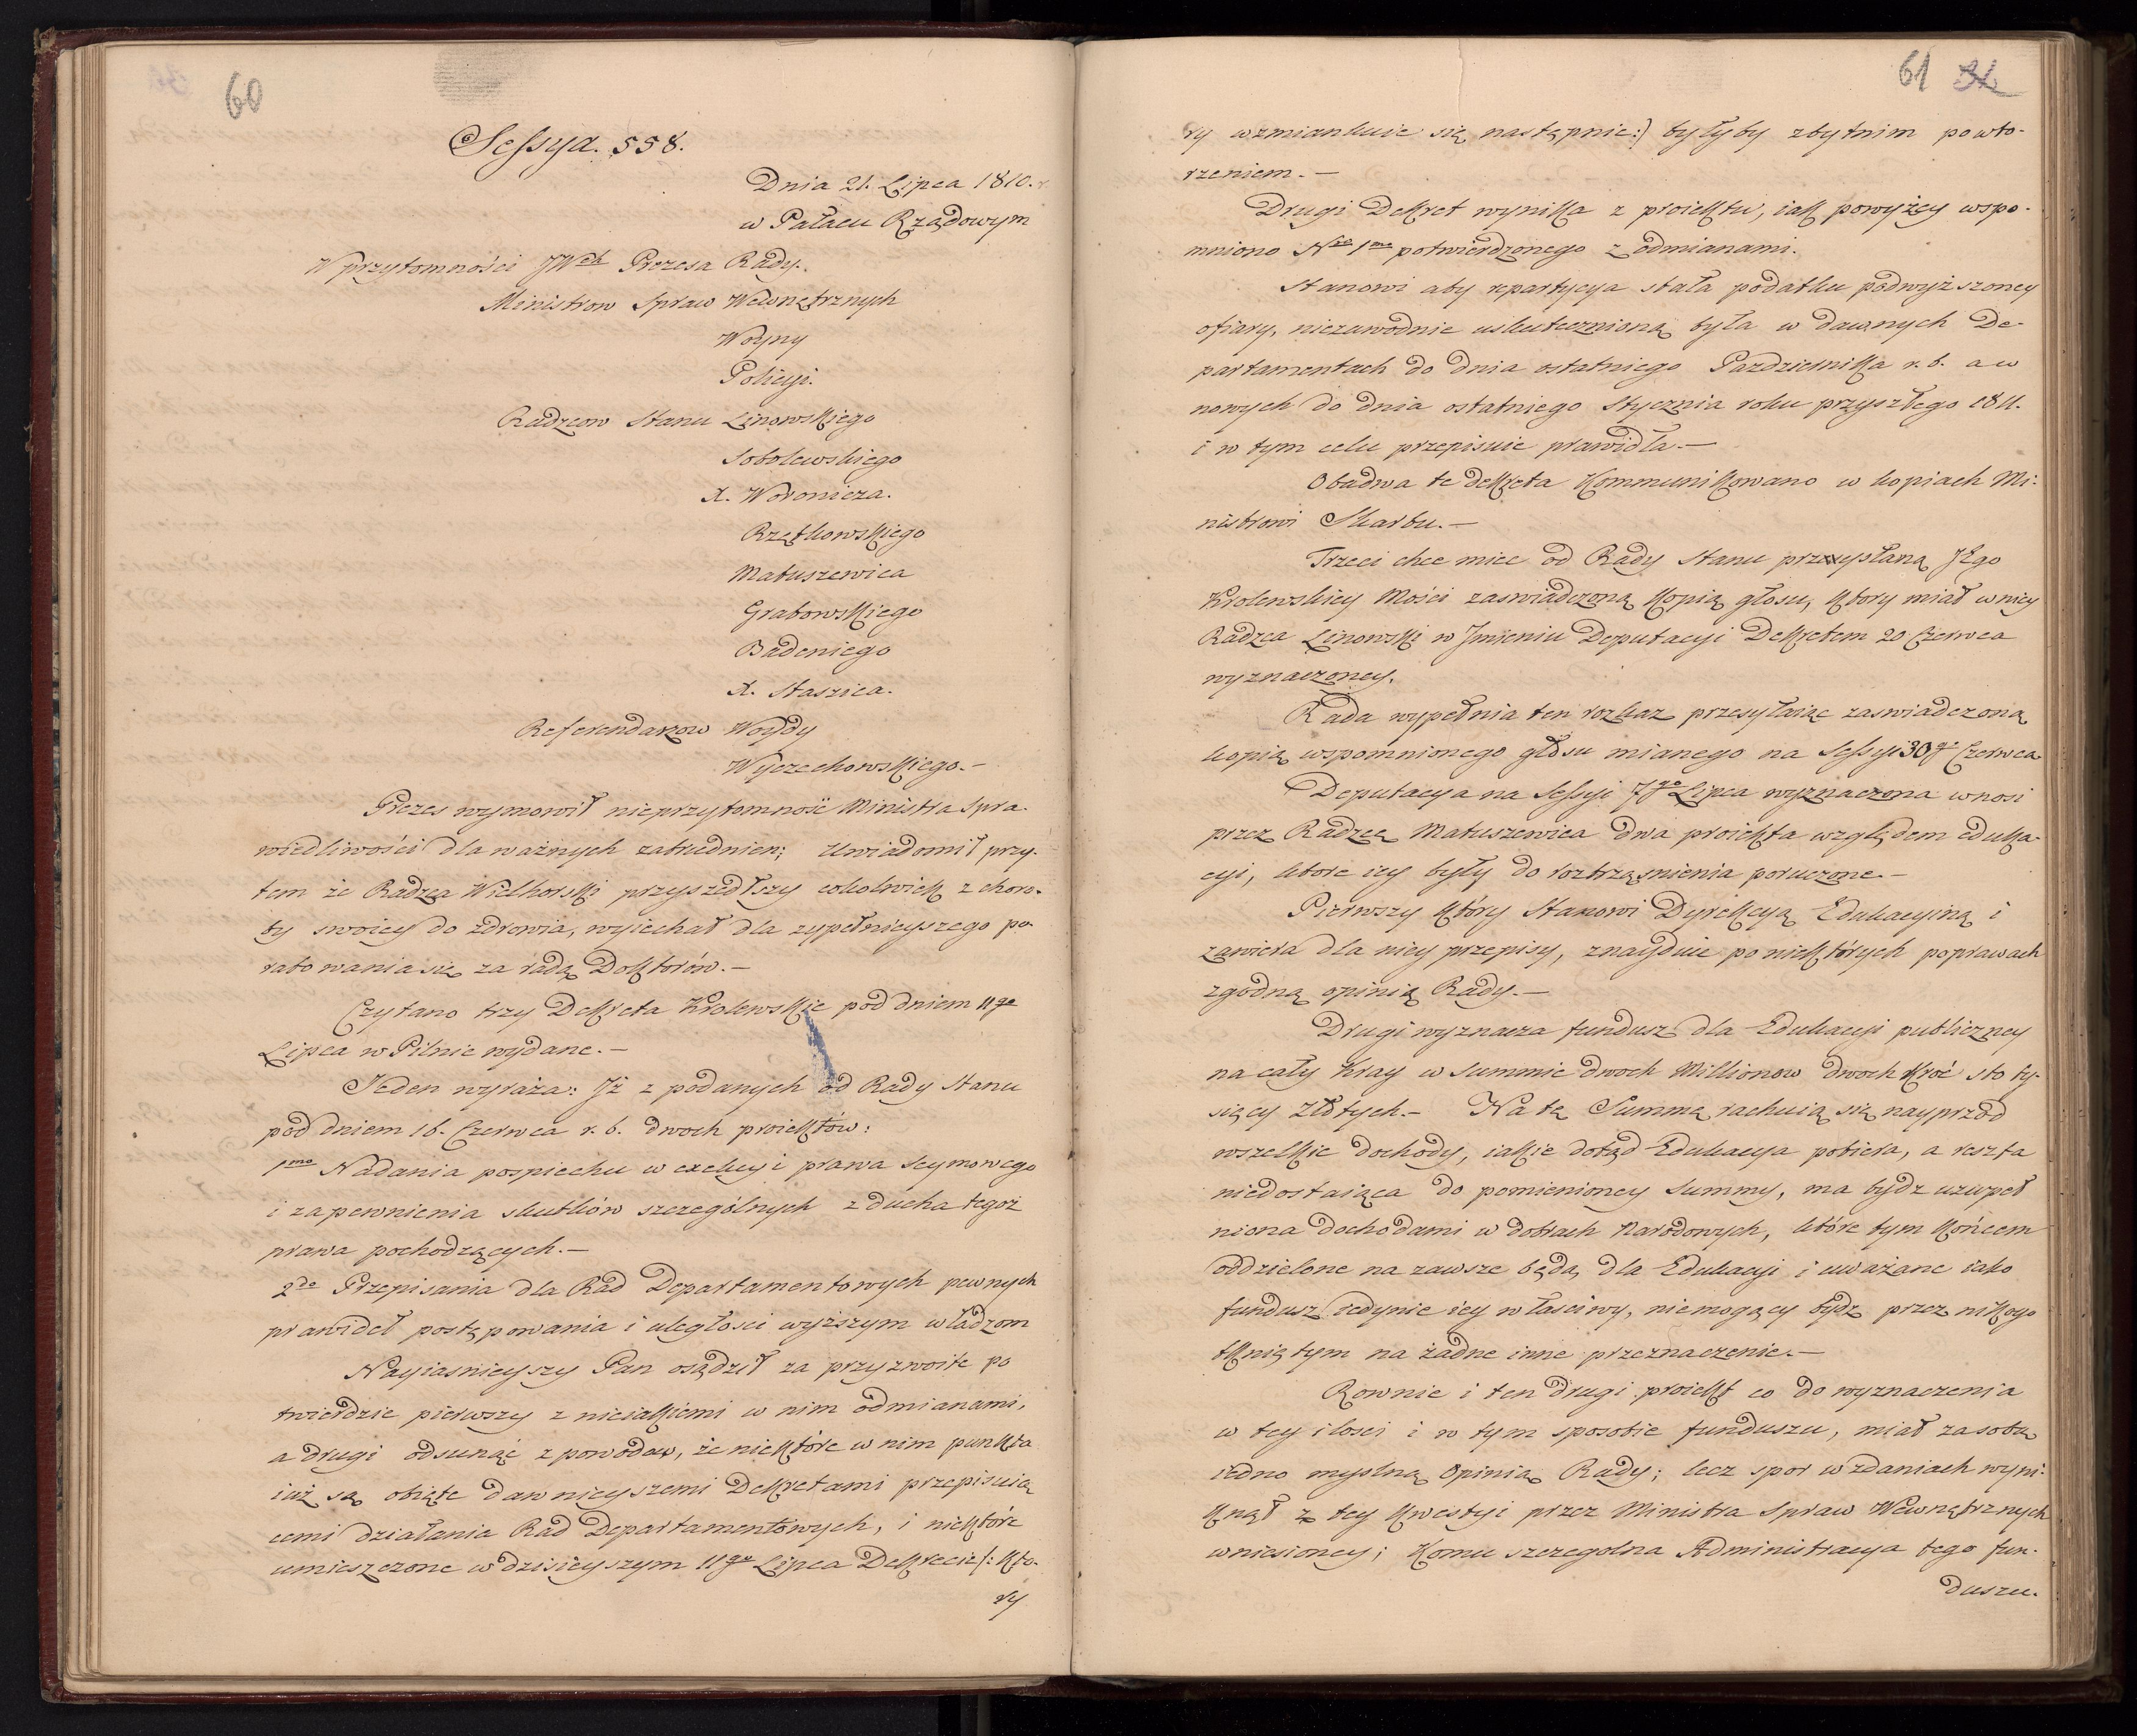 60
Sessya. 558.
Dnia 21. Lipca 1810. r.
w Pałacu Rządowym
W przytomności JWch Prezesa Rady.
Ministrow Spraw Wewnętrznych
Woyny
Policyi.
Radzcow Stanu Linowskiego
Sobolewskiego
X. Woronicza.
Rzętkowskiego
Matuszewica
Grabowskiego
Badeniego
X. Staszica.
Referendarzow Woydy
Wyczechowskiego.-
Prezes wymowił nieprzytomność Ministra Spra-
wiedliwości dla ważnych zatrudnien; Uwiadomił przy-
tem że Radzca Wielhorski przyszedłszy cokolwiek z choro-
by swoiey do zdrowia, wyiechał dla zupełnieyszego po-
ratowania się za radą Doktorów.-
Czytano trzy Dekreta Krolewskie pod dniem 11go
Lipca w Pilnic wydane.-
Jeden wyraża: Iż z podanych od Rady Stanu
pod dniem 16. Czerwca r. b. dwoch proiektów:
1mo Nadania pospiechu w exekucyi prawa Seymowego
i zapewnienia skutków szczególnych z ducha tegoż
prawa pochodzących.-
2do Przepisania dla Rad Departamentowych pewnych
prawideł postępowania i uległości wyższym władzom
Nayiasnieyszy Pan osądził za przyzwoite po
twierdzic pierwszy z nieiakiemi w nim odmianami,
a drugi odsunąć z powodow, że niektóre w nim punkta
iuż są obięte dawnieyszemi Dekretami przepisuią
cemi działania Rad Departamentowych, i niektóre
umieszczone w dzisieyszym 11go Lipca Dekrecie /: kto-
ry
61 31
ry wzmiankuie się następnie:) byłyby zbytnim powto-
rzeniem.-
Drugi Dekret wynika z proiektu, iak powyżey wspo-
mniono Nro 1mo potwierdzonego z odmianami.
Stanowi aby repartycya stała podatku podwyższoney
ofiary, niezawodnie uskutecznioną była w dawnych De-
partamentach do dnia ostatniego Pazdziernika r. b. a w
nowych do dnia ostatniego Stycznia roku przyszłego 1811.
i w tym celu przepisuie prawidła.-
Obadwa te dekreta Kommunikowano w kopiach Mi-
nistrowi Skarbu.-
Trzeci chce miec od Rady Stanu przysłaną JEgo
Krolewskiey Mości zaswiadczoną kopią głosu, ktory miał w niey
Radzca Linowski w Imieniu Deputacyi Dekretem 20 Czerwca
wyznaczoney.
Rada wypełnia ten rozkaz przesyłaiąc zaswiadczoną
kopią wspomnionego głosu mianego na Sessyi 30go Czerwca
Deputacya na Sessyi 7go Lipca wyznaczona wnosi
przez Radzcę Matuszewica dwa proiekta względem eduka-
cyi, ktore iey były do roztrząsnienia poruczone.-
Pierwszy który Stanowi Dyrekcyą Edukacyiną i
zawiera dla niey przepisy, znayduie po niektórych poprawach
zgodną opinią Rady.-
Drugi wyznacza fundusz dla Edukacyi publiczney
na cały Kray w Summie dwoch Millionow dwoch kroć sto ty-
siący Złotych.- Na tę Summę rachuią się nayprzod
wszelkie dochody, iakie dotąd Edukacya pobiera, a reszta
niedostaiąca do pomienioney Summy, ma bydz uzupeł
niona dochodami w dobrach Narodowych, które tym końcem
oddzielone na zawsze będą dla Edukacyi i uważane iako
fundusz iedynie iey właściwy, niemogący bydz przez nikogo
tkniętym na żadne inne przeznaczenie.-
Rownie i ten drugi proiekt co do wyznaczenia
w tey ilosci i w tym sposobie funduszu, miał za sobą
iedno myslną Opinią Rady; lecz spor w zdaniach wyni-
knął z tey kwestyi przez Ministra Spraw Wewnętrznych
wniesioney; Komu szczegolna Administracya tego fun-
duszu.